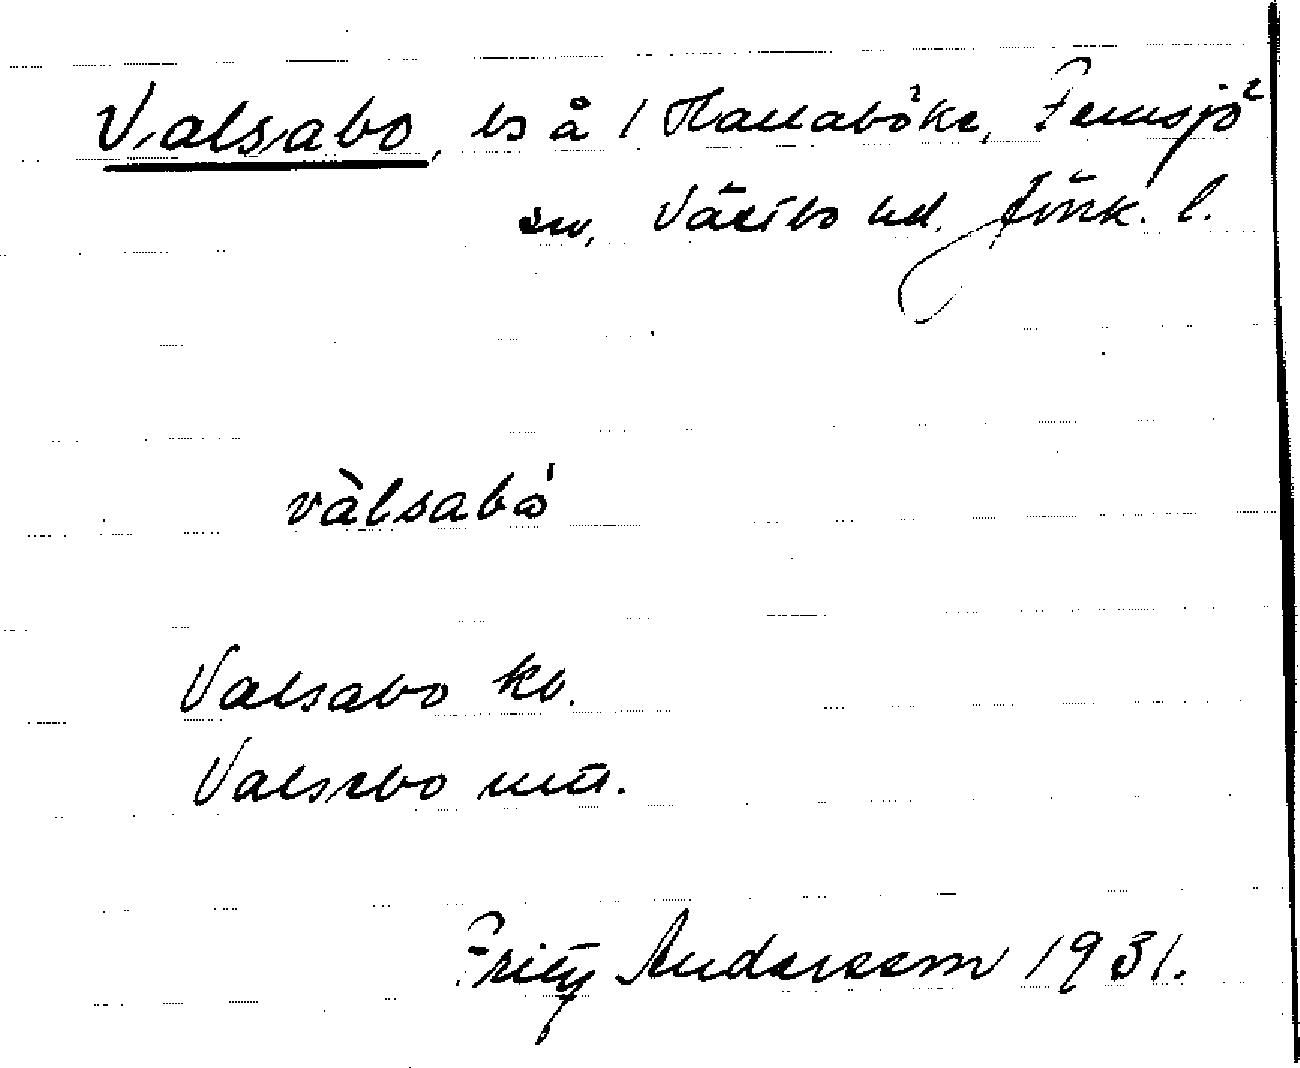 Valsabo, ls å 1 Hallaböke, Femsjö
sn, Västbo hd. Jönk. l.
vàlsabó
Valsabo kb.
Valsabo
Fritz Andersson 1931.